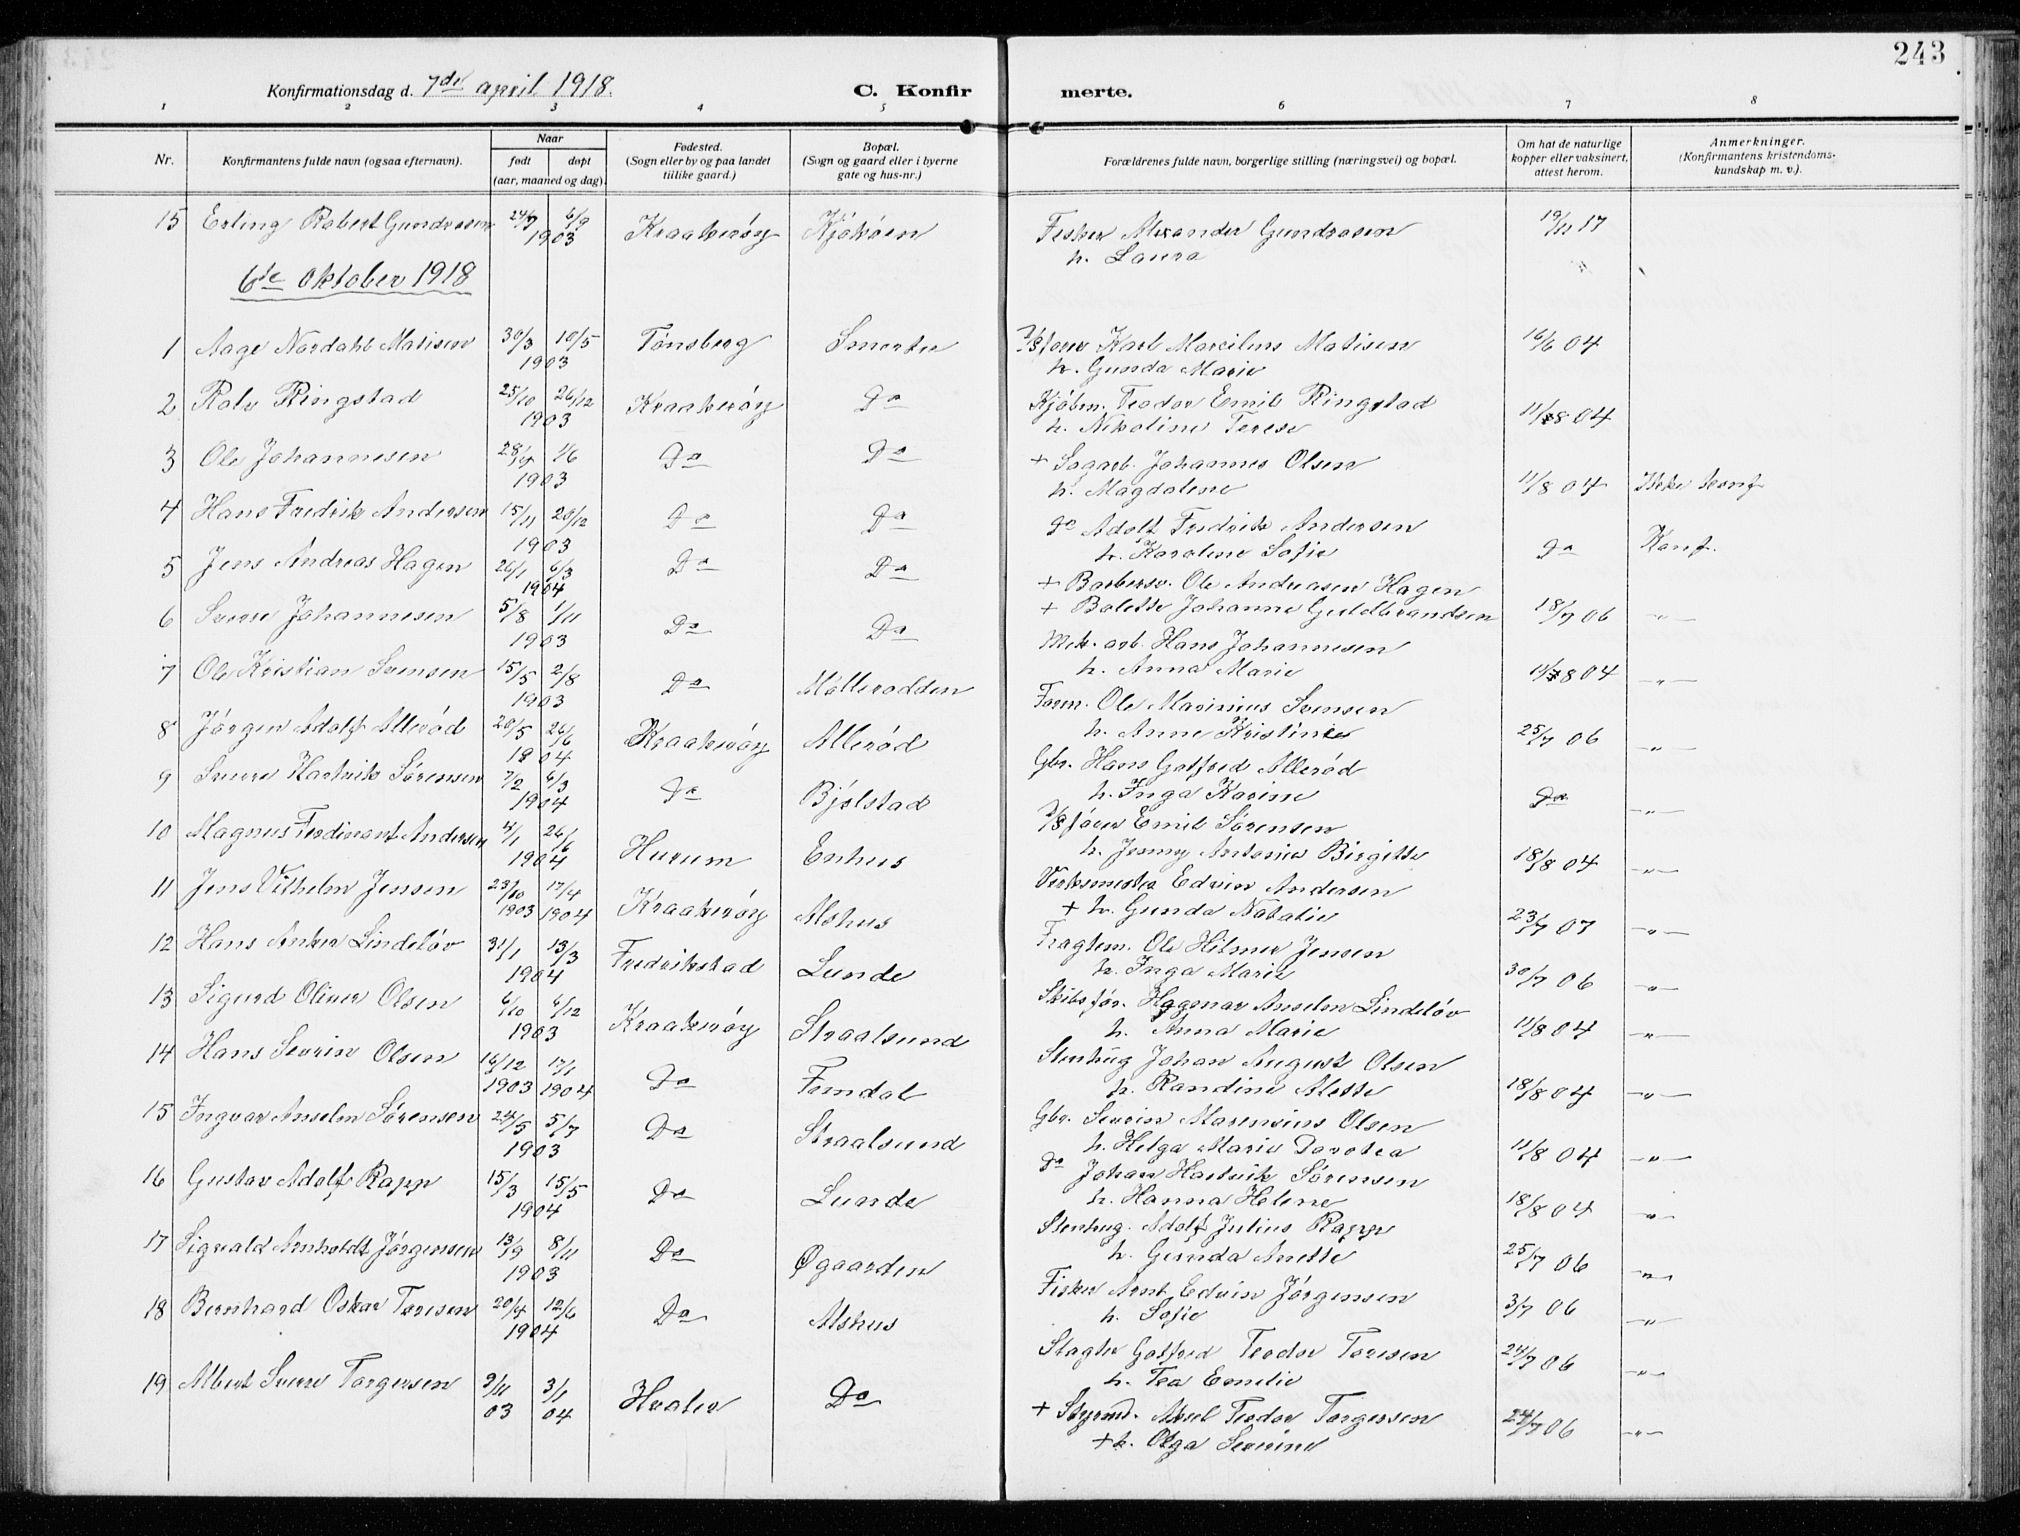 243
Konfirmationsdag d. 7de april 1918. C. Konfirmerte.
1 2 3 4 5 6 7 8
Nr. Konfirmantens fulde navn (ogsaa efternavn). Naar født døpt (aar, maaned og dag). Fødested. (Sogn eller by og paa landet tillike gaard.) Bopæl. (Sogn og gaard eller i byerne gate og hus-nr.) Forældrenes fulde navn, borgerlige stilling (næringsvei) og bopæl. Om hat de naturlige kopper eller vaksinert, attest herom. Anmerkninger. (Konfirmantens kristendomskundskap m. v.).
15 Erling Robert Gundrosen 24/7 6/9 1903 Kraakerøy Kjøkøen Fisker Alexander Gundrosen 19/11 17
h. Laura
6te oktober 1918
1 Aage Nordahl Matisen 30/3 10/5 1903 Tønsberg Smerter fører Karl Marcilius Matisen 16/6 04
h. Gunda Marie
2 Rolv Ringstad 25/10 26/12 1903 Kraakerøy Do Kjøbm. Teodor Emil Ringstad 11/8 04
h. Nikoline Terese
3 Ole Johannesen 28/4 1/6 1903 Do Do + Sagarb. Johannes Olsen 11/8 04 Ikke konf
h. Magdalene
4 Hans Fredrik Andersen 15/11 20/12 1903 Do Do do Adolf Fredrik Andersen Do Konf.
h. Karoline Sofie
5 Jens Andreas Hagen 26/1 6/3 1904 Do Do + Barbersv. Ole Andreasen Hagen 18/7 06 -"-
+ Bolette Johanne Guldbrandsen
6 Sverre Johannesen 5/8 1/11 1903 Do Do Mek. arb. Hans Johannesen 11/8 04 -"-
h. Anna Marie
7 Ole Kristian Svensen 15/5 2/8 1903 Do Møllerodden Form. Ole Marinius Svensen 25/7 06 -"-
h. Anne Kristine
8 Jørgen Adolf Allerød 20/5 26/6 1904 Kraakerøy Allerød Gbr. Hans Gotfred Allerød Do -"-
h. Inga Karine
9 Sverre Hartvik Sørensen 7/2 6/3 1904 Do Bjølstad fører Emil Sørensen 18/8 04 -"-
h. Jenny Antonie Birgitte
10 Magnus Ferdinant Andersen 4/1 26/6 1904 Hurum Enhus Verksmester Edvin Andersen 23/7 07 -"-
+ h. Gunda Natalie
11 Jens Vilhelm Jensen 23/10 1903 17/4 1904 Kraakerøy Alshus Fragtem. Ole Hilmer Jensen 30/7 06 -"-
h. Inga Marie
12 Hans Anker Lindeløv 31/1 13/3 1904 Fredrikstad Lunde Skibsfør. Anselm Lindeløv 11/8 04 -"-
h. Anna Marie
13 Sigurd Oliver Olsen 6/10 6/12 1903 Kraakerøy Straalsund Stenhug Johan August Olsen 18/8 04 -"-
h. Randine Alette
14 Hans Severin Olsen 16/12 1903 17/1 1904 Do Femdal Gbr. Severin Marensius Olsen 11/8 04 -"-
h. Helga Marie Dorotea
15 Ingvar Anselm Sørensen 24/5 5/7 1903 Do Straalsund do Johan Hartvik Sørensen 18/8 04 -"-
h. Hanna Helene
16 Gustav Adolf Rapp 15/3 15/5 1904 Do Lunde Stenhug. Adolf Julius Rapp 25/7 06 -"-
h. Gunda Anette
17 Sigvald Arnholdt Jørgensen 13/9 8/11 1903 Do Øgaarden Fisker Arnt Edvin Jørgensen 3/7 06 -"-
h. Sofie
18 Bernhard Oskar Toresen 20/4 12/6 1904 Do Alshus Slagter Gotfred Teodor Toresen 24/7 06 -"-
h. Tea Emilie
19 Albert Sverre Torgersen 9/11 03 3/1 04 Hvaler Do + Styrmd. Aksel Teodor Torgersen 24/7 06 -"-
+ h. Olga Severine